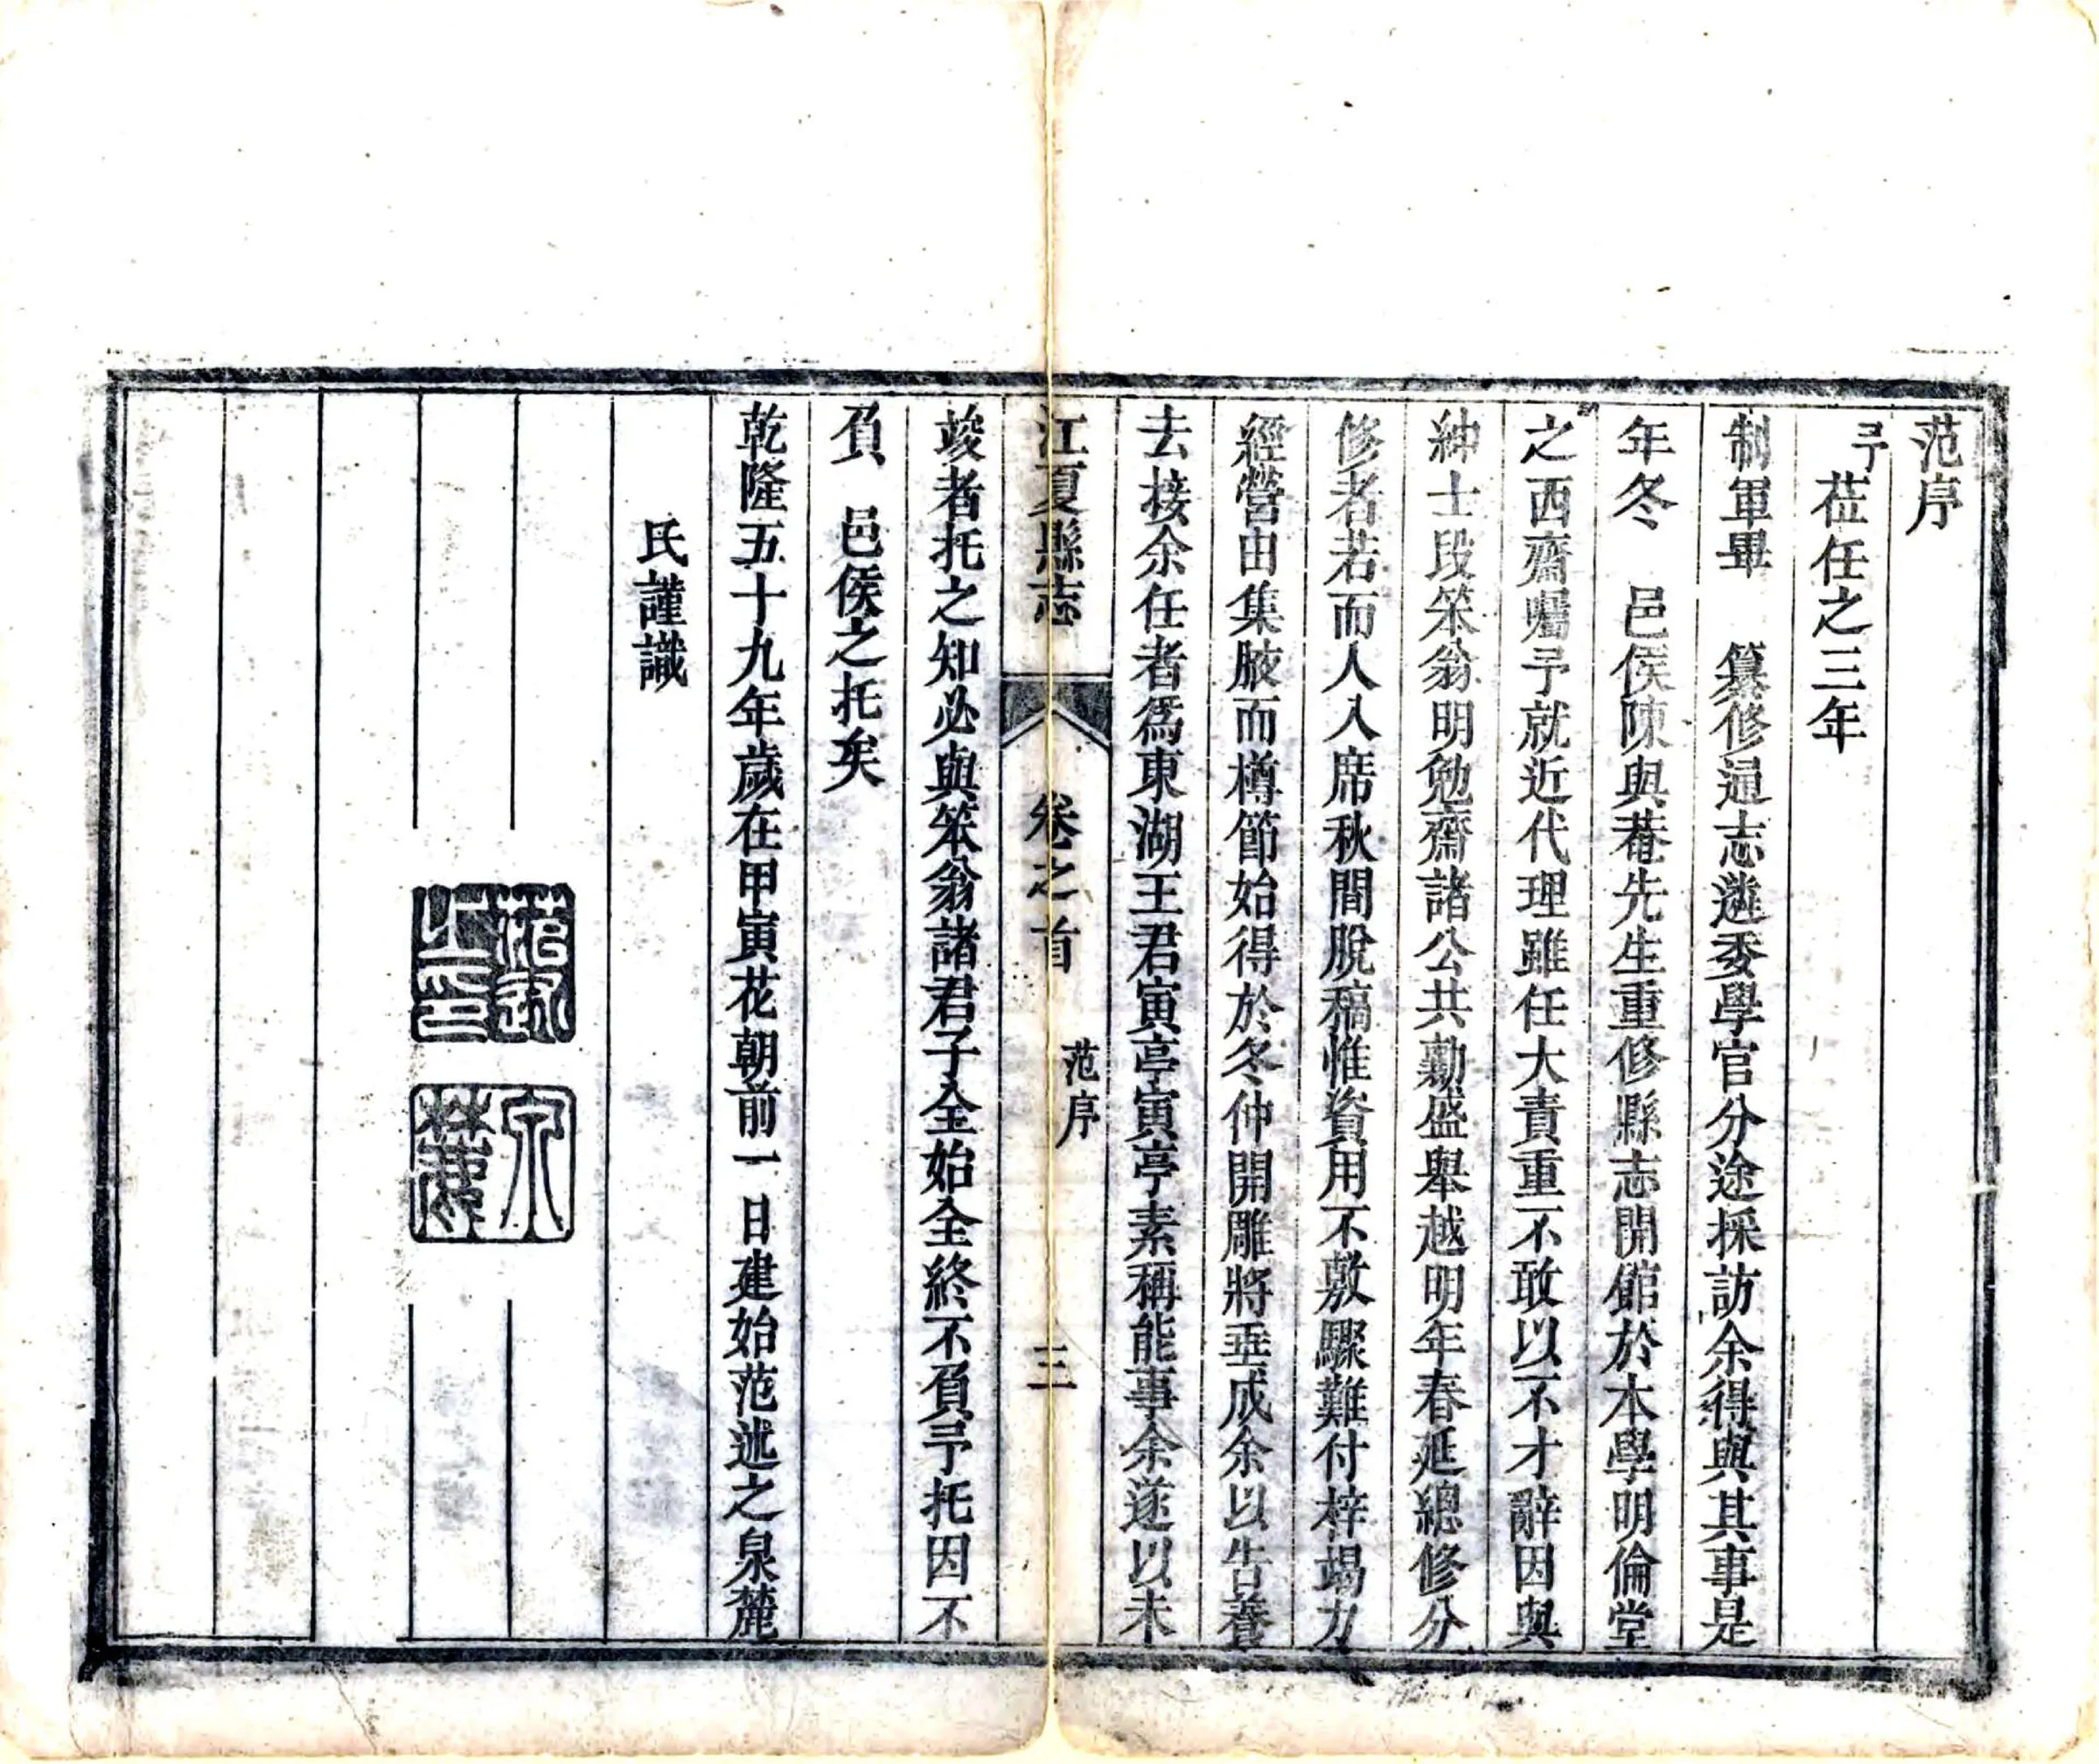 范序
予莅任之三年
制軍畢　纂修通志遴委學官分途採訪余得與其事是
年冬　邑侯陳與菴先生重修縣志開館於本學明倫堂
之西齋囑予就近代理雖任大責重不敢以不才辭因與
紳士段笨翁明勉齋諸公共勷盛舉越明年春延總修分
修者若而人入席秋間脫稿惟資用不敷驟難付梓竭力
經營由集腋而樽節始得於冬仲開雕將垂成余以告養
去接余任者爲東湖王君寅亭寅亭素稱能事余遂以未
江夏縣志　卷之首　范序　三
竣者托之知必與笨翁諸君子全始全終不負予托因不
負　邑侯之托矣
乾隆五十九年歲在甲寅花朝前一日建始范述之泉麓
氏謹識
范述之印
泉麓